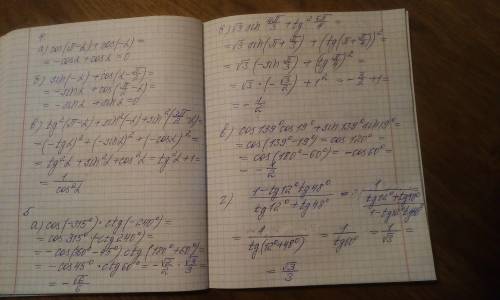 а) cos(π-α)+cos(-α)=
=-cosα+cosα=0
б) sin(-α)+cos(α-π/2)=
=-sinα+cos(π/2-α)=
=-sinα+sinα=0
в) tg²(π-α)+sin²(-α)+sin²(3π/2-α)=
=(-tgα)²+(-sinα)²+(-cosα)²=
=tg²α+sin²α+cos²α=tg²α+1=
=1/cos²α
5
а) cos(-315°)·ctg(-240°)=
=cos315°·(-ctg240°)=
=-cos(360°-45°)·ctg(180°+60°)=
=-cos45°·ctg60°=-√2/2·√3/3=
=-√6/6
√3 sin 4π/3+tg² 5π/4=
=√3 sin(π+π/3)+(tg(π+π/4))²=
=√3·(-sin π/3)+(tg π/4)²=
=√3·(-√3/2)+1²=-3/2+1=
=-1/2
в) cos139°cos19°+sin139°sin19°=
=cos(139°-19°)=cos120°=
=cos(180°-60°)=-cos60°=
=-1/2
г) 1-tg12°tg48°/tg12°+tg48°=
=1/tg(12°+48°)=1/tg60°=1/√3=
=√3/3